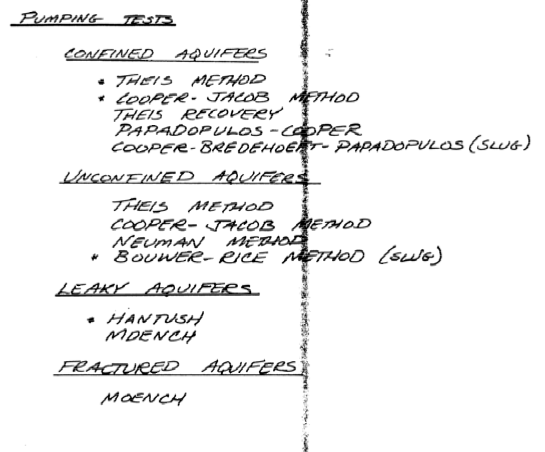 PUMPING TESTS
CONFINED AQUIFERS
* THEIS METHOD
* COOPER-JACOB METHOD
THEIS RECOVERY
PAPADOPULOS-COOPER
COOPER-BREDEHOEFT-PAPADOPULOS (SLUG)
UNCONFINED AQUIFERS
THEIS METHOD
COOPER-JACOB METHOD
NEUMAN METHOD
* BOUWER-RICE METHOD (SLUG)
LEAKY AQUIFERS
* HANTUSH
MOENCH
FRACTURED AQUIFERS
MOENCH